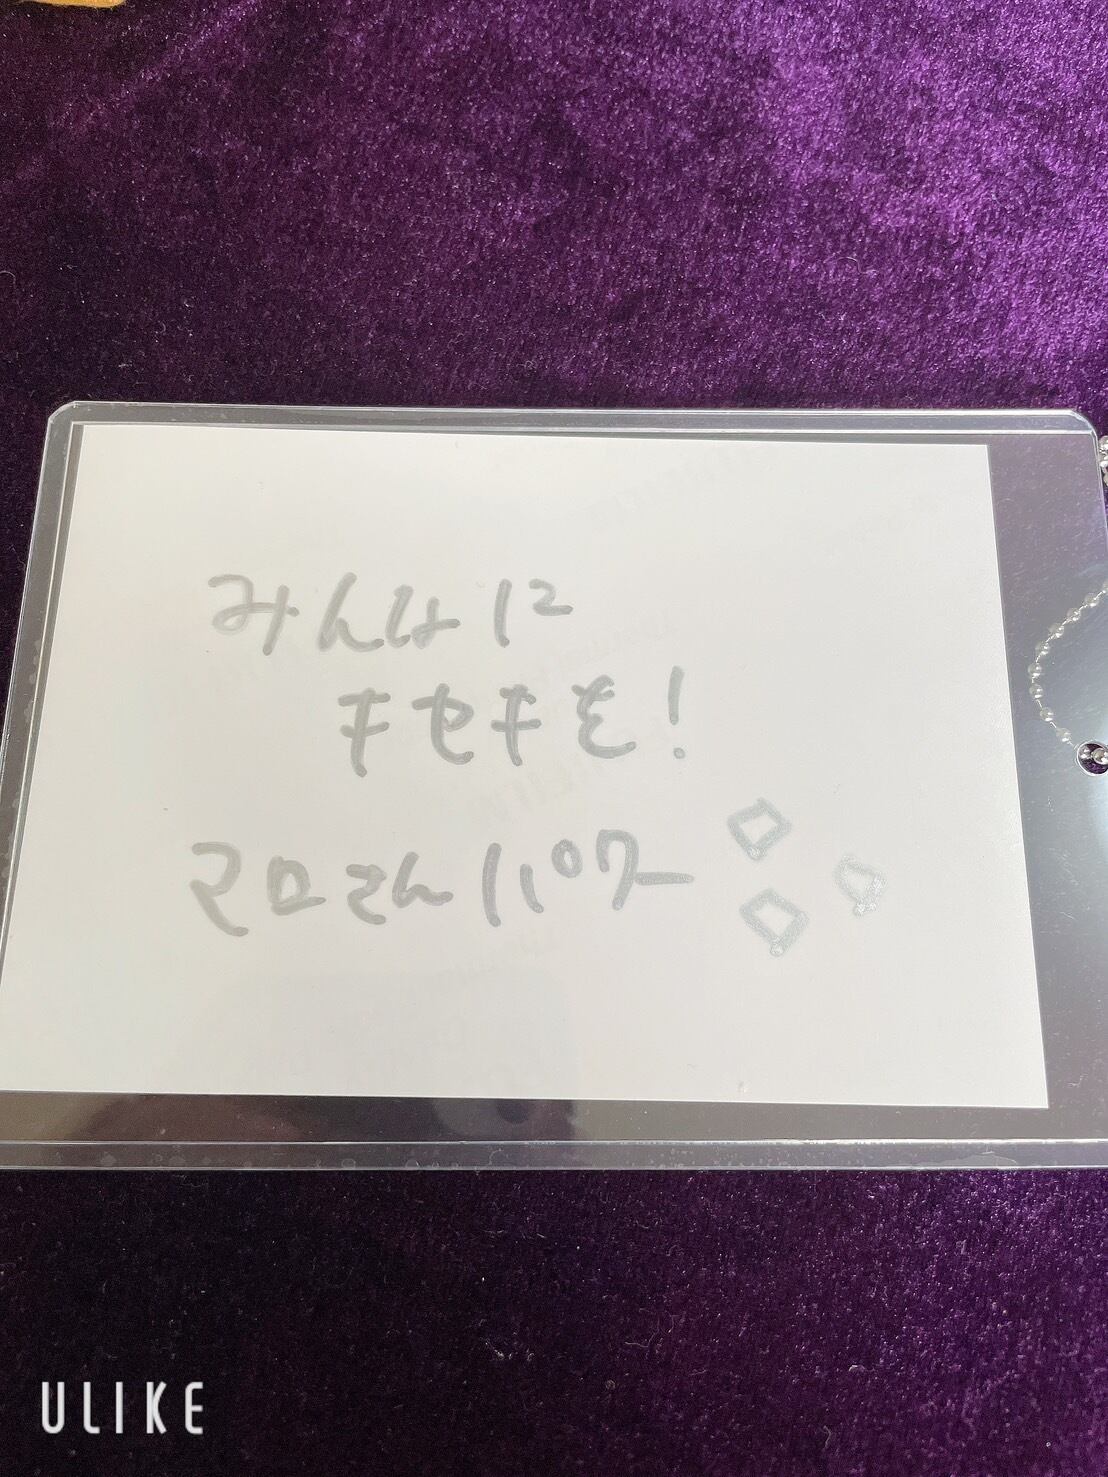 みんなに
キセキを!
マロさんパワー
ULIKE